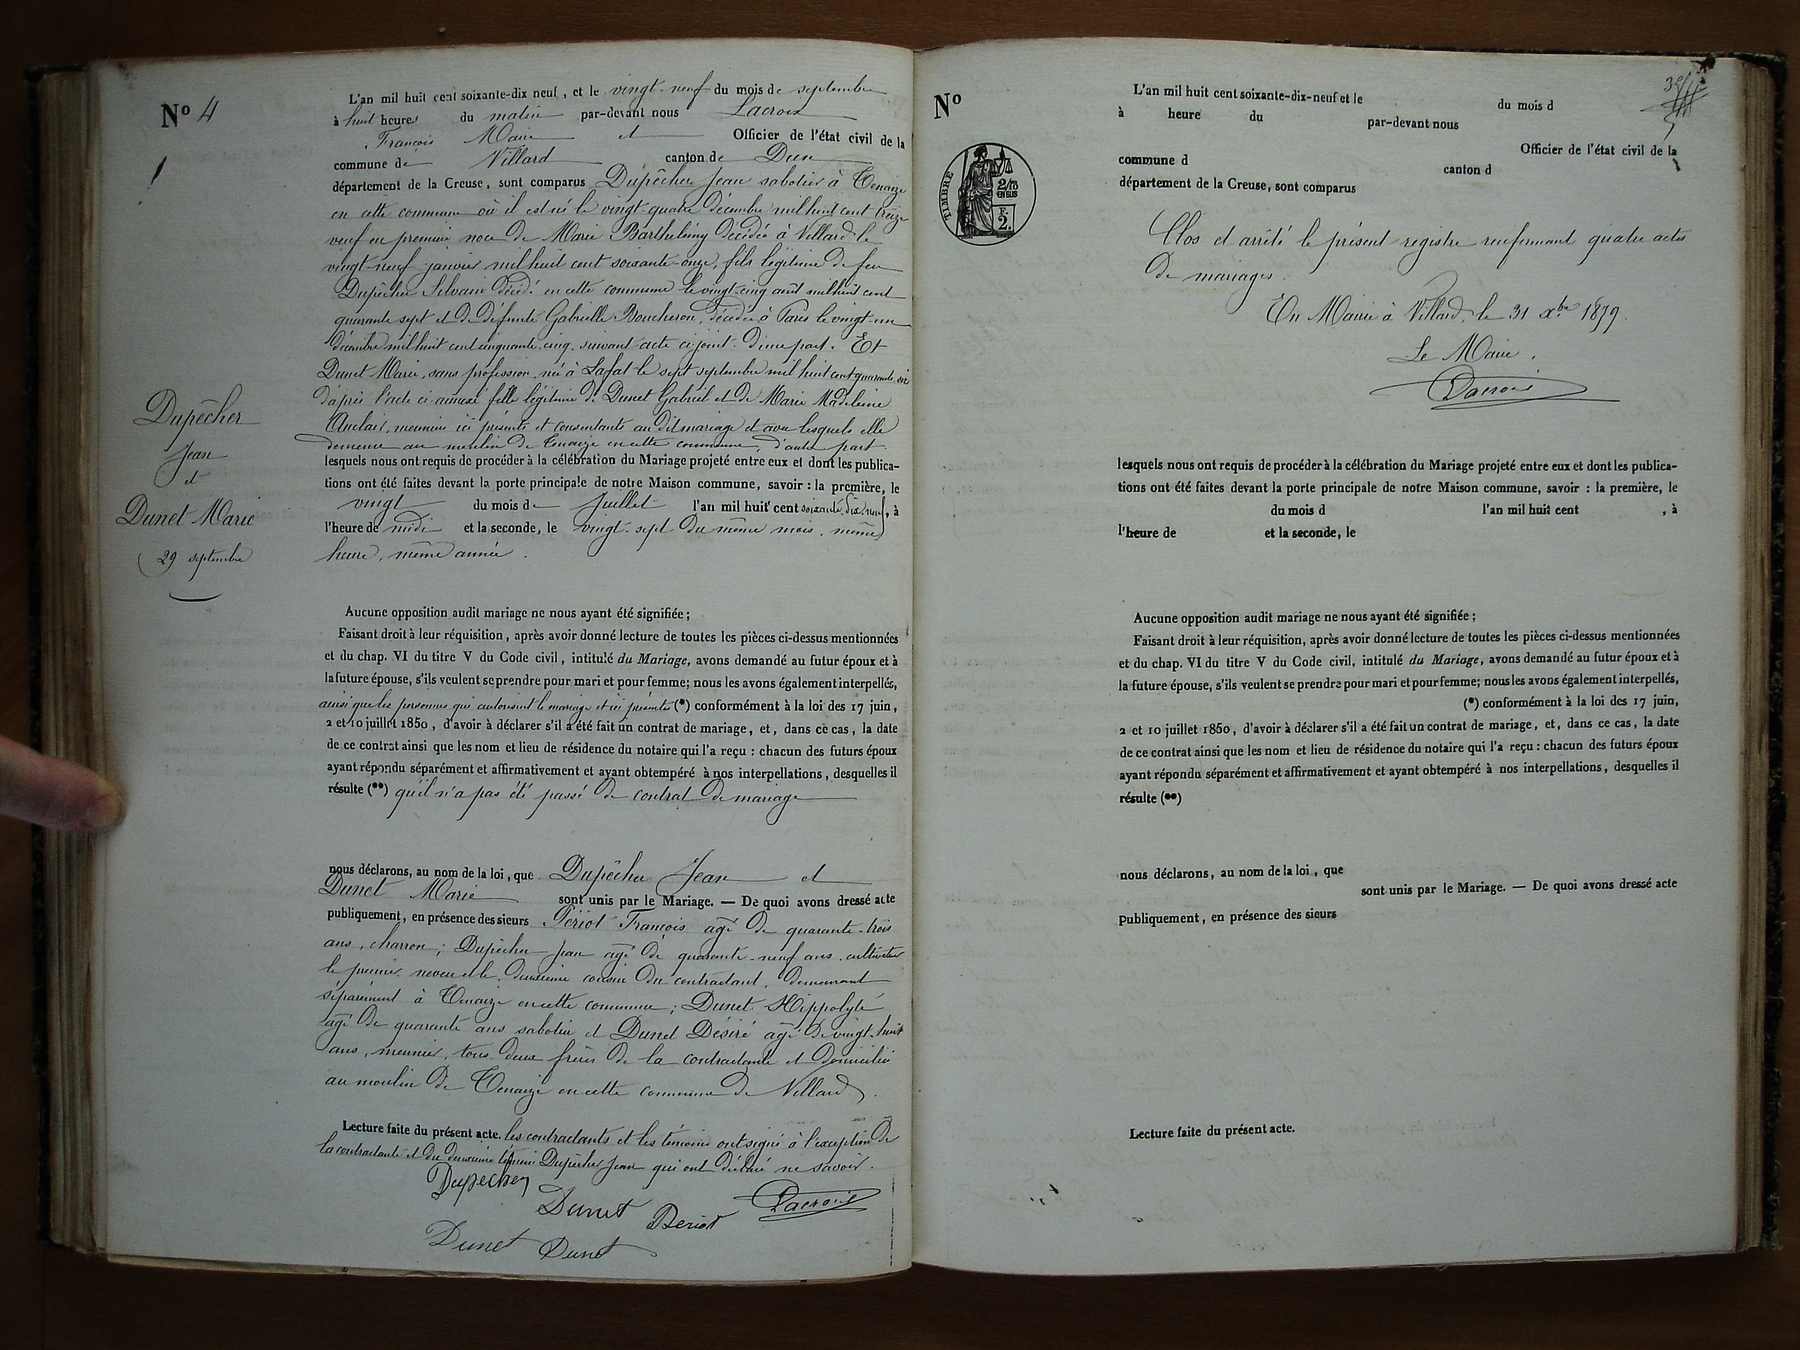 N° 4
L'an mil huit cent soixante-dix neuf, et le vingt-neuf du mois de septembre
à huit heures du matin par-devant nous Lacroix
François Maire et Officier de l'état civil de la
commune de Villard canton de Dun
département de la Creuse, sont comparus Dupêcher Jean sabotier à Tenaize
en cette commune où il est né le vingt quatre décembre mil huit cent treize
veuf en premier noce de Marie Barthelémy décédée à Villard le
vingt-neuf janvier mil huit cent soixante-onze, fils légitime de feu
Dupêcher Silvain décédé en cette commune le vingt-cinq août mil huit cent
quarante sept et de défunte Gabrielle Boucheron, décédée à Paris le vingt-un
décembre mil huit cent cinquante-cinq, suivant acte ci-joint. D'une part. Et
Dunet Marie, sans profession, née à Lafat le sept septembre mil huit cent quarante-six
d'après l'acte ci-annexé fille légitime de Dunet Gabriel et de Marie Madeleine
Auclair, meunier ici présents et consentants au dit mariage et avec lesquels elle
demeure au moulin de Tenaize en cette commune, d'autre part.
lesquels nous ont requis de procéder à la célébration du Mariage projeté entre eux et dont les publica-
tions ont été faites devant la porte principale de notre Maison commune, savoir : la première, le
vingt du mois de Juillet l'an mil huit cent soixante dix neuf, à
l'heure de midi et la seconde, le vingt-sept du même mois, même
heure, même année.
Dupêcher
Jean
et
Dunet Marie
29 septembre
Aucune opposition audit mariage ne nous ayant été signifiée ;
Faisant droit à leur réquisition, après avoir donné lecture de toutes les pièces ci-dessus mentionnées
et du chap. VI du titre V du Code civil, intitulé du Mariage, avons demandé au futur époux et à
la future épouse, s'ils veulent se prendre pour mari et pour femme; nous les avons également interpellés,
ainsi que les personnes qui autorisent le mariage et ici présentes (*) conformément à la loi des 17 juin,
2 et 10 juillet 1850, d'avoir à déclarer s'il a été fait un contrat de mariage, et, dans ce cas, la date
de ce contrat ainsi que les nom et lieu de résidence du notaire qui l'a reçu : chacun des futurs époux
ayant répondu séparément et affirmativement et ayant obtempéré à nos interpellations, desquelles il
résulte (**) qu'il n'a pas été passé de contrat de mariage
nous déclarons, au nom de la loi, que Dupêcher Jean et
Dunet Marie sont unis par le Mariage. — De quoi avons dressé acte
publiquement, en présence des sieurs Périot François âgé de quarante-trois
ans, charron ; Dupêcher Jean âgé de quarante-neuf ans, cultivateur
le premier neveu et le deuxième cousin du contractant, demeurant
séparément à Tenaize en cette commune ; Dunet Hippolyte
âgé de quarante ans sabotier et Dunet Désiré âgé de vingt-huit
ans, meunier, tous deux frères de la contractante et domiciliés
au moulin de Tenaize en cette commune de Villard.
Lecture faite du présent acte. les contractants et les témoins ont signé à l'exception de
la contractante et du deuxième témoin Dupêcher Jean qui ont déclaré ne savoir.
Dupecher
Dunet Periot Lacroix
Dunet Dunet
N°
L'an mil huit cent soixante-dix-neuf et le du mois d
à heure du par-devant nous
Officier de l'état civil de la
commune d canton d
département de la Creuse, sont comparus
TIMBRE
2/10
EN SUS
F.
2.
Clos et arrêté le présent registre renfermant quatre actes
de mariages.
En Mairie à Villard, le 31 xbre 1879.
Le Maire,
Lacroix
lesquels nous ont requis de procéder à la célébration du Mariage projeté entre eux et dont les publica-
tions ont été faites devant la porte principale de notre Maison commune, savoir : la première, le
du mois d l'an mil huit cent , à
l'heure de et la seconde, le
Aucune opposition audit mariage ne nous ayant été signifiée ;
Faisant droit à leur réquisition, après avoir donné lecture de toutes les pièces ci-dessus mentionnées
et du chap. VI du titre V du Code civil, intitulé du Mariage, avons demandé au futur époux et à
la future épouse, s'ils veulent se prendre pour mari et pour femme; nous les avons également interpellés,
(*) conformément à la loi des 17 juin,
2 et 10 juillet 1850, d'avoir à déclarer s'il a été fait un contrat de mariage, et, dans ce cas, la date
de ce contrat ainsi que les nom et lieu de résidence du notaire qui l'a reçu : chacun des futurs époux
ayant répondu séparément et affirmativement et ayant obtempéré à nos interpellations, desquelles il
résulte (**)
nous déclarons, au nom de la loi, que
sont unis par le Mariage. — De quoi avons dressé acte
publiquement, en présence des sieurs
Lecture faite du présent acte.